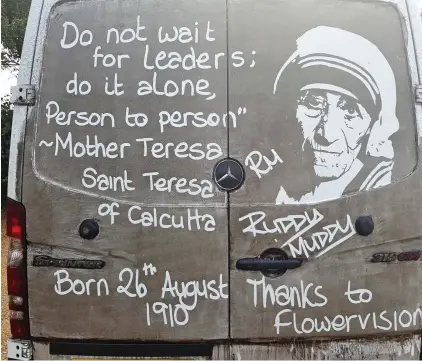 Do not wait
for leaders;
do it alone,
Person to person"
~Mother Teresa
Saint Teresa
of Calcutta
Born 26th August
1910
RM
RUDDY
MUDDY
Thanks to
Flowervision